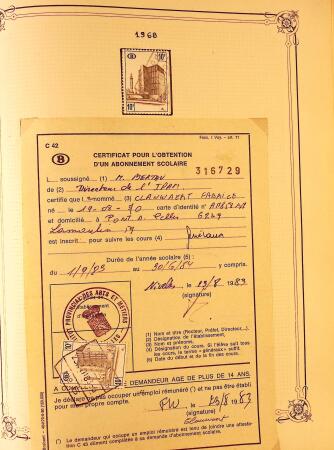 1968
B
C 42
B
CERTIFICAT POUR L'OBTENTION
D'UN ABONNEMENT SCOLAIRE
316729
L soussigné (1) M. BERTAU
de (2) Directeur de l'IPAM
certifie que l nommé (3) CLAUWAERT FABRICE
né le 19-08-70 carte d'identité n°
et domicilié à PONT A Celles 6249
59
est inscrit pour suivre les cours (4)
Durée de l'année scolaire (5) :
1/9/83 au 30/6/84 y compris.
Nivelles, 19/8 1983
(signature)
(1) Nom et titre (Recteur, Préfet, Directeur...).
(2) Désignation de l'établissement.
(3) Nom et prénoms.
(4) Désignation du cours. Si l'élève suit tous les cours, le terme « généraux » suffit.
(5) Date du début et de la fin des cours.
DEMANDEUR AGE DE PLUS DE 14 ANS.
de ne pas occuper un emploi rémunéré (*) et ne pas être établi
pour mon propre compte.
1983
(signature)
(*) Le demandeur qui occupe un emploi rémunéré est tenu de joindre une attestation
C 45 dûment complétée à sa demande d'abonnement scolaire.